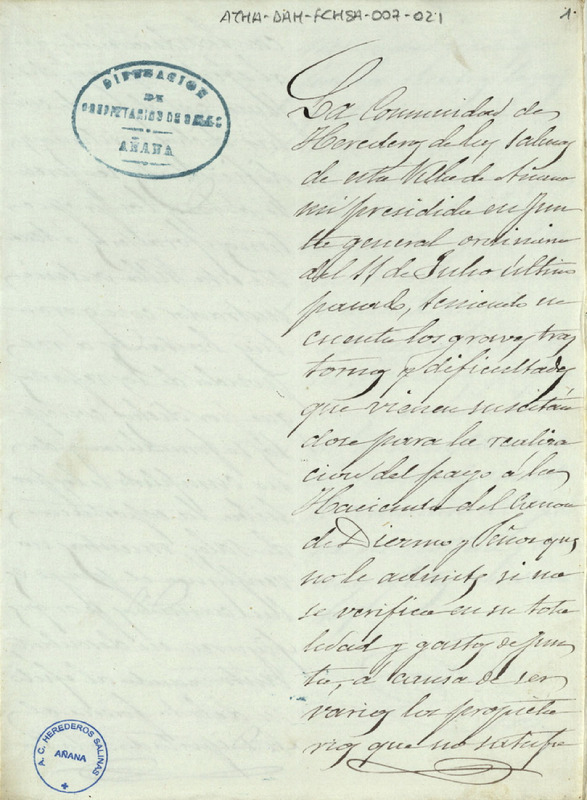 ATHA-DAH-FCHSA-007-021
1.
DIPUTACION
DE
AÑANA
La Comunidad de
Herederos de las Salinas
de esta Villa de Añana
mi presidida en Jun
ta general ordinaria
del 11 de Julio último
pasado, teniendo en
cuenta los graves tras
tornos y dificultades
que vienen suscitán
dose para la realiza
cion del pago á la
Hacienda del Canon
de Diezmo y que
no le admite si no
se verifica en su tota
lidad y gastos de Jun
ta, á causa de ser
varios los propieta
rios que no satisfa
A. C. HEREDEROS SALINAS
AÑANA